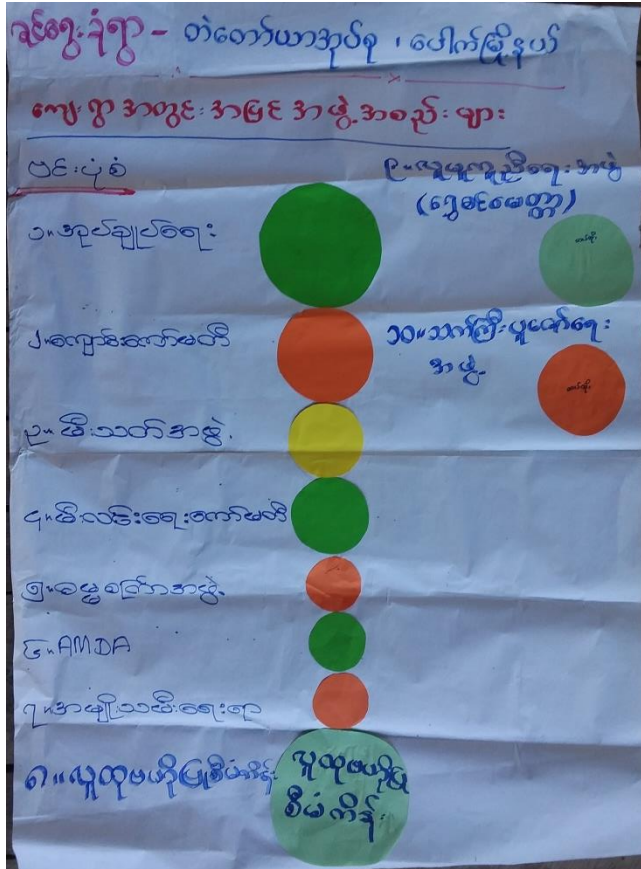 ခင်ရွေးခုံရွာ - တဲတော်ယာအုပ်စု ၊ ပေါက်မြို့နယ်
ကျေးရွာအတွင်းအပြင် အဖွဲ့အစည်းများ
ဗင်းပုံစံ
၁။ အုပ်ချုပ်ရေး
၂။ ကျောင်းကော်မတီ
၃။ မီးသတ်အဖွဲ့
၄။ မီးလင်းရေးကော်မတီ
၅။ ဓမ္မစကြာအဖွဲ့
၆။ AMDA
၇။ အမျိုးသမီးရေးရာ
၈။ လူထုဗဟိုပြုစီမံကိန်း
လူထုဗဟိုပြု
စီမံကိန်း
၉။ လူမှုကူညီရေးအဖွဲ့
(ရွှေမင်မေတ္တာ)
၁၀။ သက်ကြီးပူဇော်ရေး
အဖွဲ့